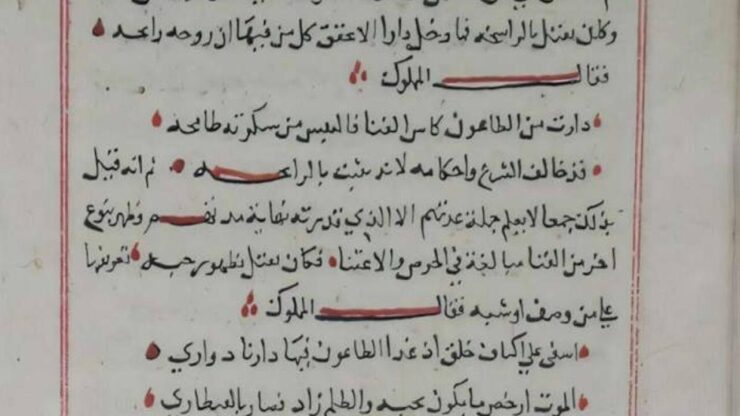 وكان يقتل بالرايحه فما دخل دارا الا تحقق كل من فيها ان روحه رايحه
فقال المملوك
دارت من الطاعون كاس الفنا فالنفس من سكرته طايحه
قد خالف الشرع واحكامه لانه يثبت بالرايحه ثم انه قتل
بذلك جمعا لا يعلم جملة عدتهم الا الذي قدرته نهاية مد وظهر بنوع
اخر من الفنا مبالغة في الحرص والاعتنا فكان يقتل بظهور حبه تعرفها
علي من وصف او شبه فقال المملوك
اسفي علي اكناف خلق اذ غدا الطاعون فيها دارنا دواري
الموت ارخص ما يكون بحبه والظلم زاد فصار بالقنطاري